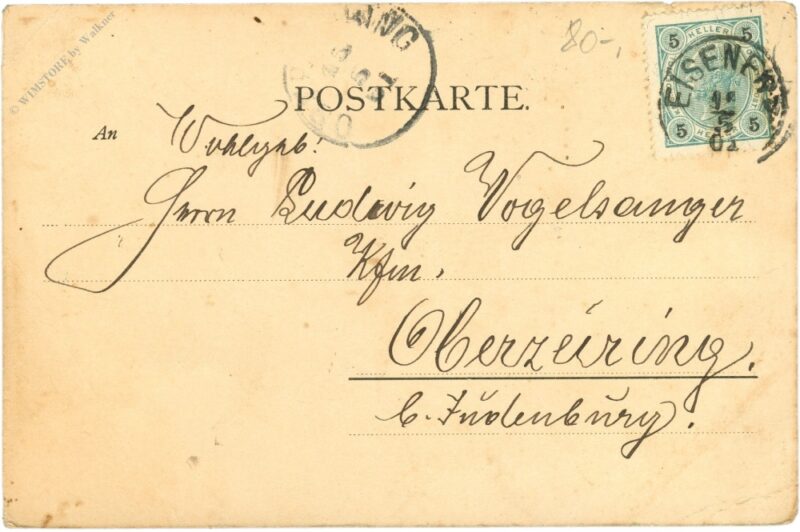 © WIMSTORE by Walkner
80-,
5 HELLER 5
EISENERZ
5 5
POSTKARTE.
An Wohlgeb!
Herrn Ludwig Vogelsanger
Kfm.
Oberzeiring.
b. Judenburg.